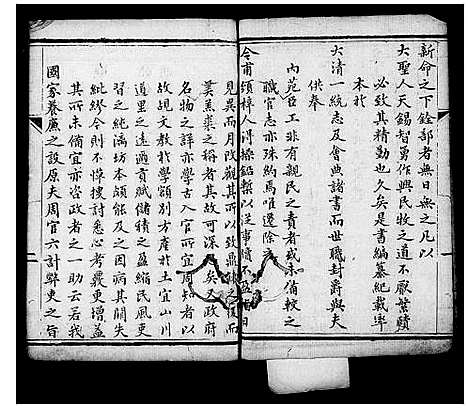 新命之下銓部者無日無之凡以
大聖人天錫智勇作興民牧之道不厭繁賾
必致其精勤也久矣是書編纂紀載率
本於
大清一統志及會典諸書而世職封爵與夫
供奉
內苑臣工非有親民之責者或未備較之
職官志亦殊約焉唯逸除
令甫頒梓人得操鉛槧以從事
見異而月改觀其所以致
冀黃業之稱者其故可深矣政府
名物之詳亦學古入官所宜周知者以
故規文教於學額別方產於土宜山川
道里之遠邇貢賦儲積之盈縮民風吏
習之純漓坊本頗能及之因病其闕失
紕繆今則不憚搜討悉心考覈更增益
其所未備宜亦咨政者之一助云若我
國家養廉之設原夫周官六計弊吏之旨